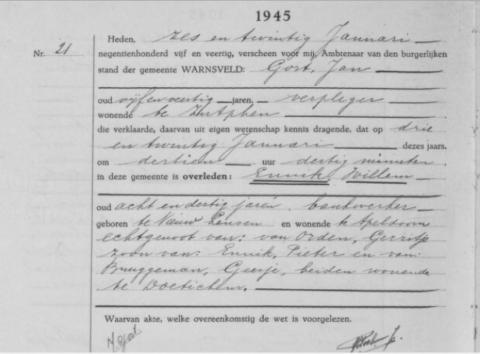 1945
Nr. 21
Heden, zes en twintig Januari
negentienhonderd vijf en veertig, verscheen voor mij, Ambtenaar van den burgerlijken
stand der gemeente WARNSVELD: Gort, Jan
oud vijfenveertig jaren, verpleger
wonende te Zutphen
die verklaarde, daarvan uit eigen wetenschap kennis dragende, dat op drie
en twintig Januari dezes jaars,
om dertien uur dertig minuten
in deze gemeente is overleden: Ennik, Willem
oud acht en dertig jaren, bankwerker
geboren te Nieuw en wonende te Apeldoorn
echtgenoot van: van Orden, Gerritje
zoon van: Ennik, Pieter en van:
Bruggeman, Geesje, beiden wonende
te Doetichem.
Waarvan akte, welke overeenkomstig de wet is voorgelezen.